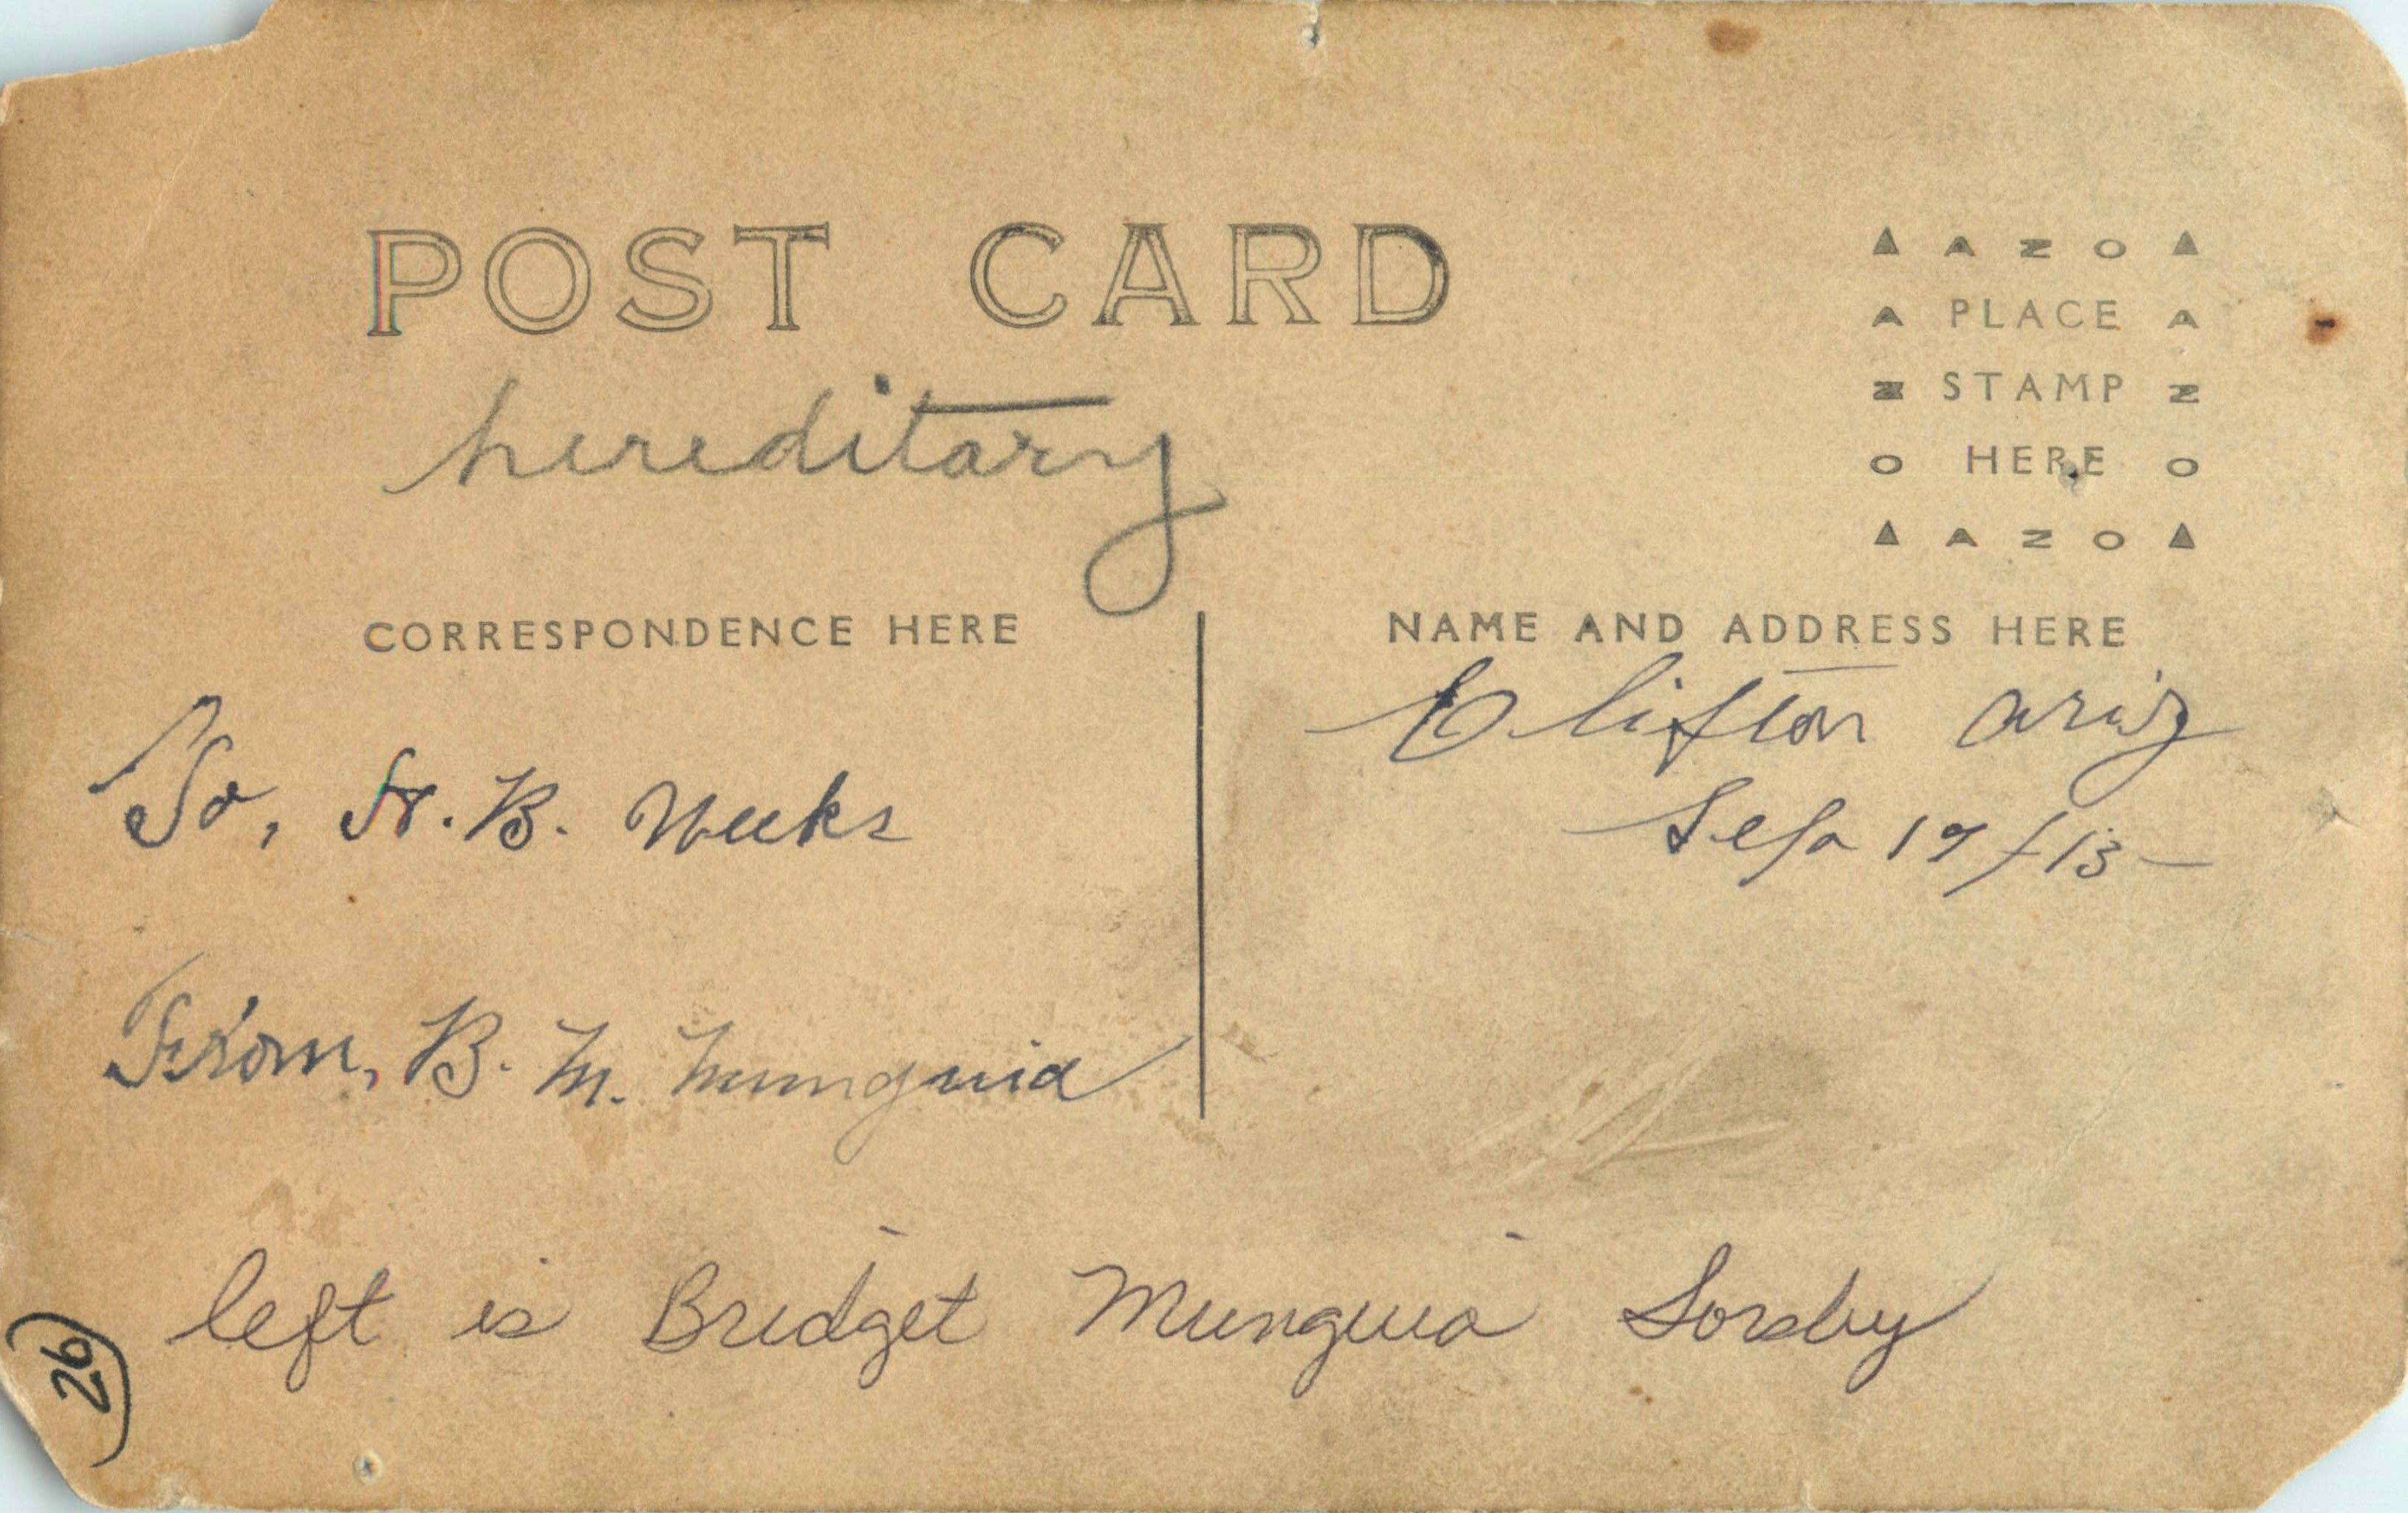 POST CARD
hereditary
AZO
PLACE
STAMP
HERE
AZO
CORRESPONDENCE HERE
NAME AND ADDRESS HERE
To, H. B. Weeks
From, B. M. Munguia
Clifton Ariz
Sep 19/13-
left is Bridget Munguia Soreby
26